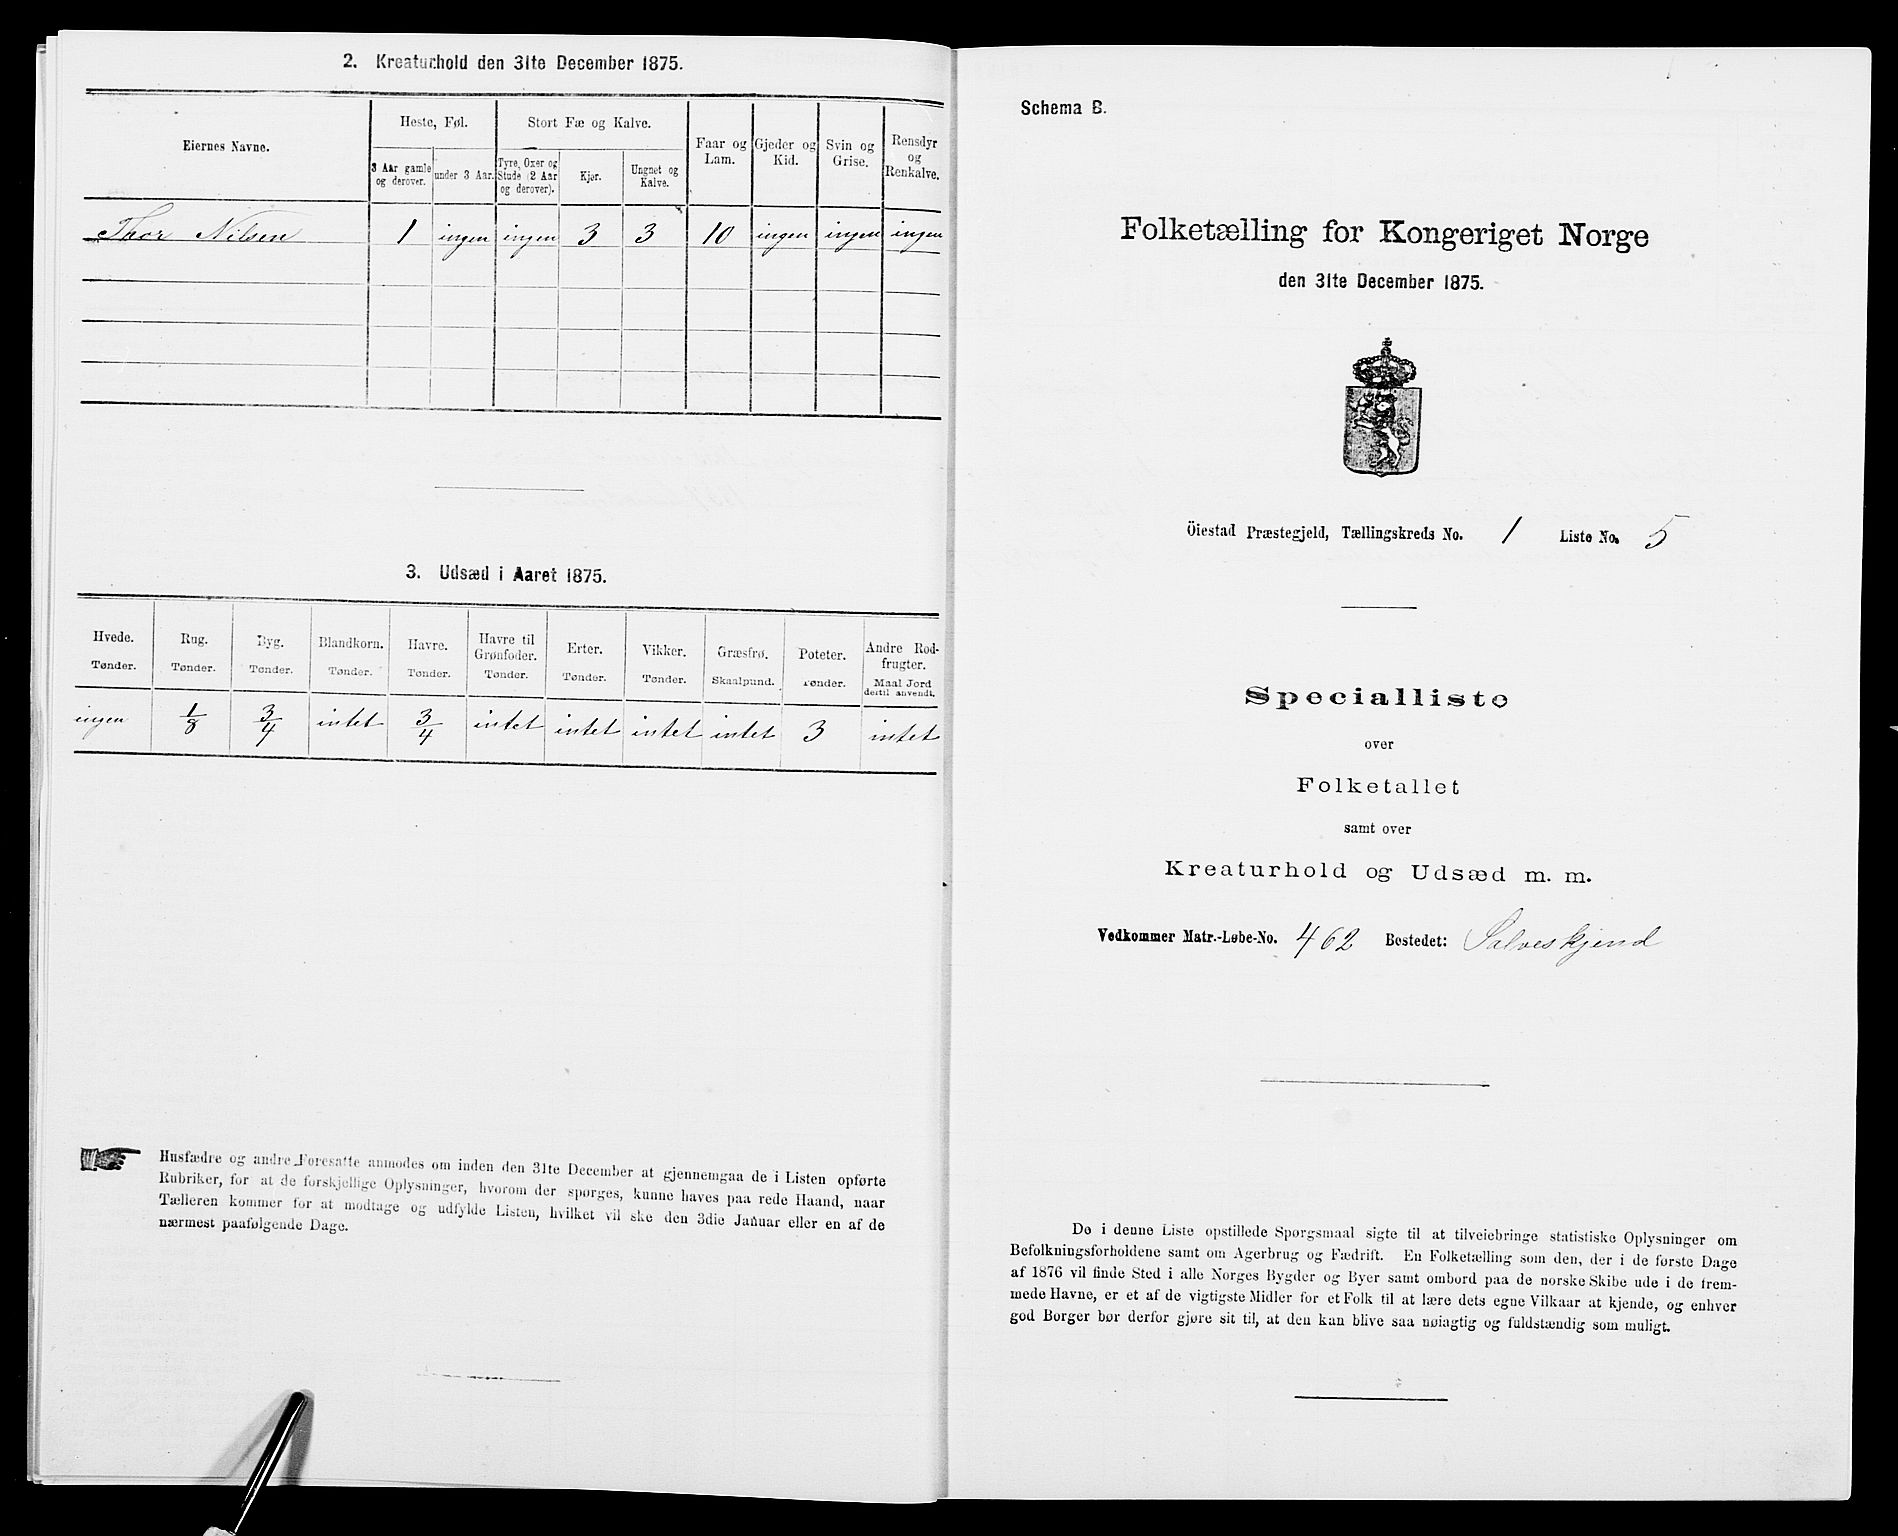 2. Kreaturhold den 31te December 1875.
Eiernes Navne.
Heste, Føl.
Stort Fæ og Kalve.
Faar og Lam.
Gjeder og Kid.
Svin og Grise.
Rensdyr og Renkalve.
3 Aar gamle og derover.
under 3 Aar.
Tyre, Oxer og Stude (2 Aar og derover).
Kjør.
Ungnet og Kalve.
Thor Nilsen 1 ingen ingen 3 3 10 ingen ingen ingen
3. Udsæd i Aaret 1875.
Hvede. Rug. Byg. Blandkorn. Havre. Havre til Grønfoder. Erter. Vikker. Græsfrø. Poteter. Andre Rodfrugter.
Tønder. Tønder. Tønder. Tønder. Tønder. Tønder. Tønder. Tønder. Skaalpund. Tønder. Maal Jord dertil anvendt.
ingen 1/8 3/4 intet 3/4 intet intet intet intet 3 intet
Husfædre og andre Foresatte anmodes om inden den 31te December at gjennemgaa de i Listen opførte
Rubriker, for at de forskjellige Oplysninger, hvorom der spørges, kunne haves paa rede Haand, naar
Tælleren kommer for at modtage og udfylde Listen, hvilket vil ske den 3die Januar eller en af de
nærmest paafølgende Dage.
Schema B.
Folketælling for Kongeriget Norge
den 31te December 1875.
Öiestad Præstegjeld, Tællingskreds No. 1 Liste No. 5
Specialliste
over
Folketallet
samt over
Kreaturhold og Udsæd m. m.
Vedkommer Matr.-Løbe-No. 462 Bostedet: Salveskjend
De i denne Liste opstillede Spørgsmaal sigte til at tilveiebringe statistiske Oplysninger om
Befolkningsforholdene samt om Agerbrug og Fædrift. En Folketælling som den, der i de første Dage
af 1876 vil finde Sted i alle Norges Bygder og Byer samt ombord paa de norske Skibe ude i de frem-
mede Havne, er et af de vigtigste Midler for et Folk til at lære dets egne Vilkaar at kjende, og enhver
god Borger bør derfor gjøre sit til, at den kan blive saa nøiagtig og fuldstændig som muligt.